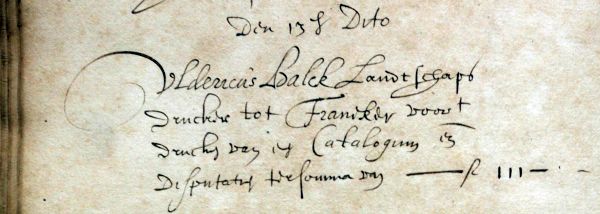 Den 13e Dito
Uldericus Balck Landtschaps
drucker tot Franeker voor t
drucken van een Catalogum en
Disputatien ter somma van — fl III —